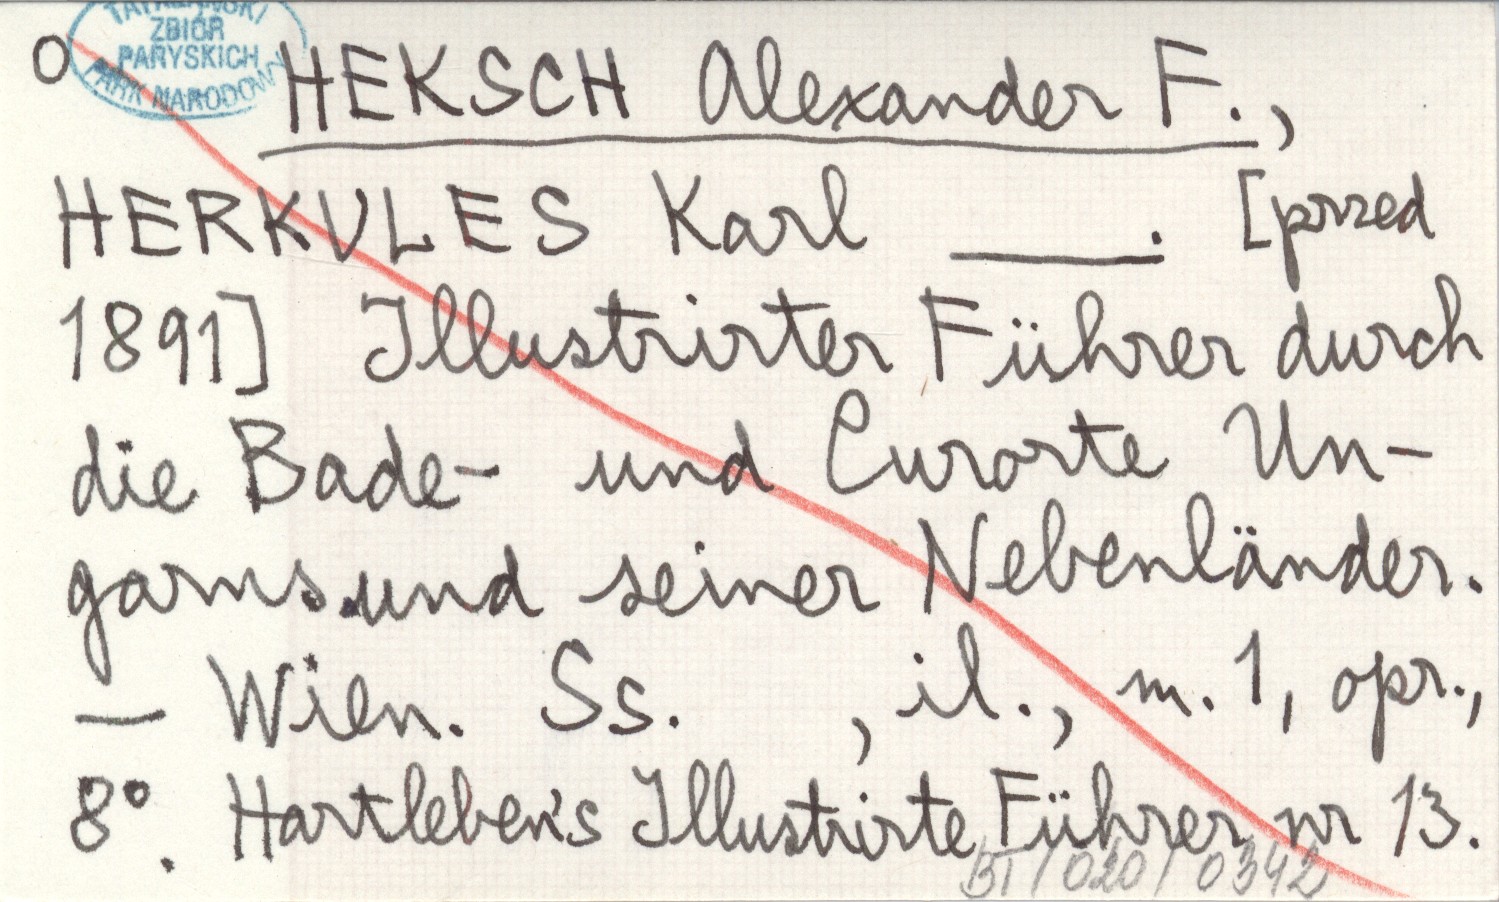 TATRZAŃSKI
ZBIÓR
PARYSKICH
PARK NARODOWY
O HEKSCH Alexander F.,
HERKULES Karl ____. [przed
1891] Illustrirter Führer durch
die Bade- und Curorte Un-
garns und seiner Nebenländer.
— Wien. Ss. , il., m. 1, opr.,
8°. Hartleben's Illustrirte Führer nr 13.
BT/020/0342